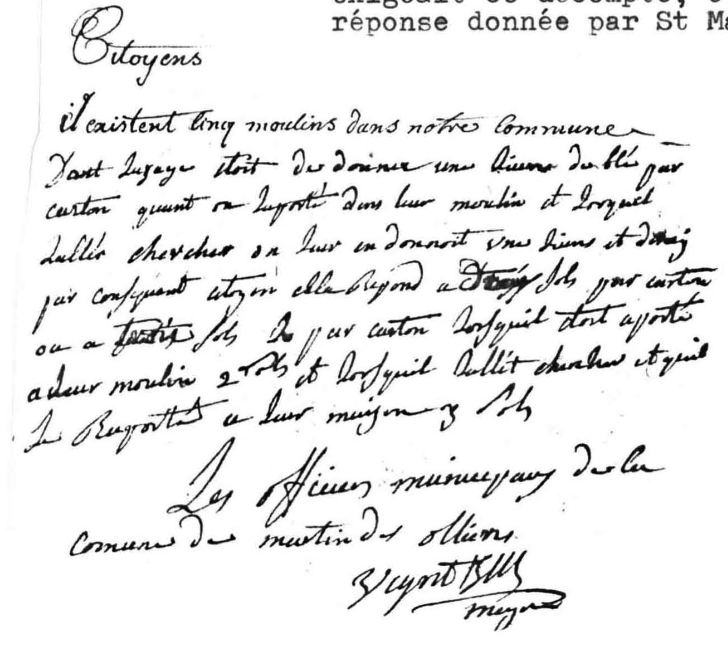 réponse donnée par St Ma
Citoyens
il existent Cinq moulins dans notre Commune
Dont lusage étoit de donner une de blé par
carton quant on laporté dans leur moulin et lorquil
lallér chercher on leur en donnoit une et demy
par consquant citoyen elle Repond a sols par carton
ou a sols par carton lorsquil étoit aporté
a leur moulin 2 sols et lorsquil lallét chercher et quil
le Raportét a leur maison 3 sols
Les officiers municipaux de la
Comune de martin des olliers
mayre